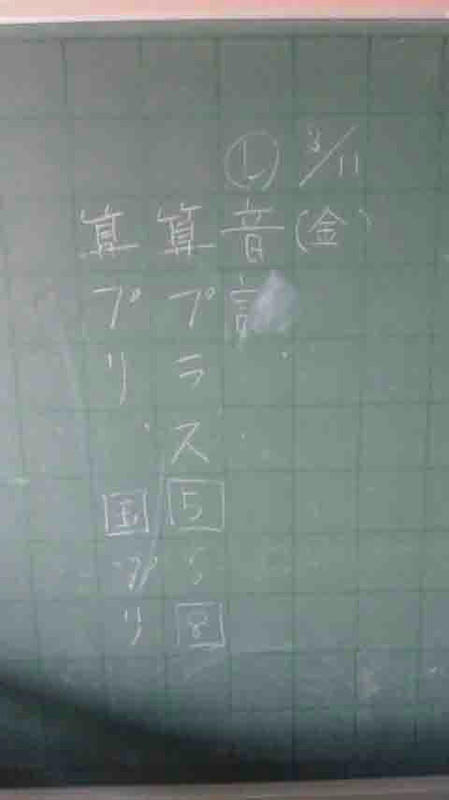 3/11(金)
し音
算プラス5〜8
算プリ 国プリ